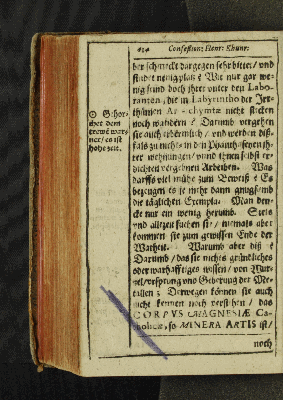 434 Confessium: Henr: Khunr:
der schmeckt dargegen sehr bitter/ vnd
findet wenig platz? Wie nur gar we-
nig sind doch jhrer vnter den Labo-
ranten/ die im Labyrintho der Jrr-
thümen Ar-chymiæ nicht stecken
noch wandern? Darumb vergehen
sie auch jdermlich/ vnd werden diß-
fals zu nichte in den
rer meynungen/ vnnd jhnen selbst er-
dichten vergebnen Arbeiten. Was
darffs viel mühe zum Beweiß? Es
bezeugen es je mehr dann gnugsamb
die täglichen Exempla. Man den-
cke nur ein wenig herumb. Stets
vnd allzeit suchen sie/ niemals aber
kommen sie zum gewissen Ende der
Warheit. Warumb aber diß?
Darumb/ das sie nichts gründliches
oder warhafftiges wissen/ von Wur-
tzel/ vrsprung vnd Geburung der Me-
tallen; Derwegen können sie auch
nicht kennen noch verstehen/ das
CORPVS MAGNESIÆ Ca-
tholicæ, so MINERA ARTIS ist/
noch
Gehor-
chet dem
trewē war-
ner/ es ist
hohe zeit.